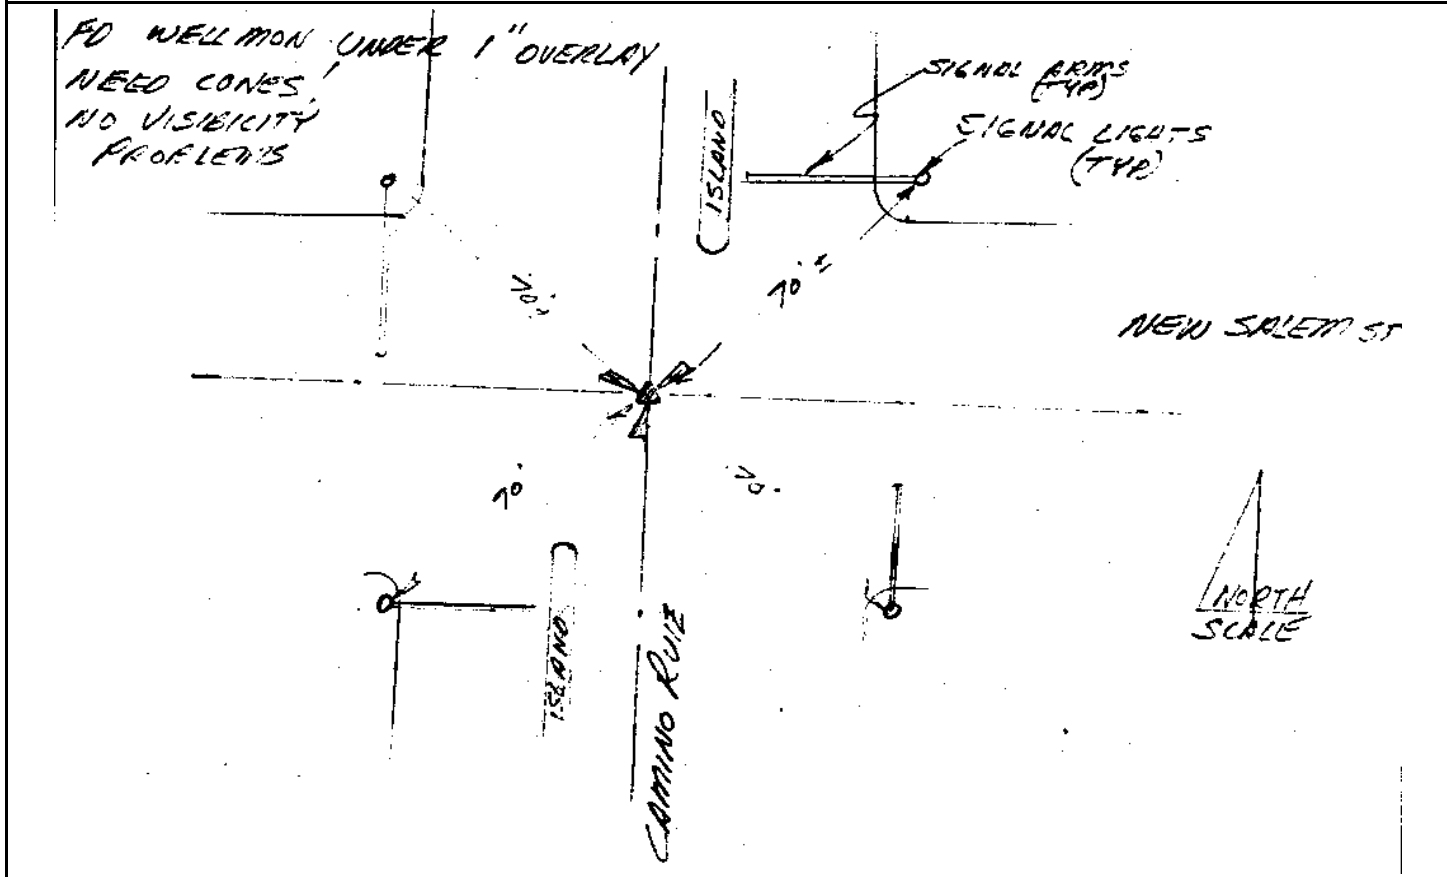 FD WELL MON UNDER 1" OVERLAY
NEED CONES,
NO VISIBILITY
PROBLEMS
SIGNAL ARMS
(TYP)
SIGNAL LIGHTS
(TYP)
ISLAND
70' ±
NEW SALEM ST
70'
ISLAND
CAMINO RUIZ
NORTH
SCALE